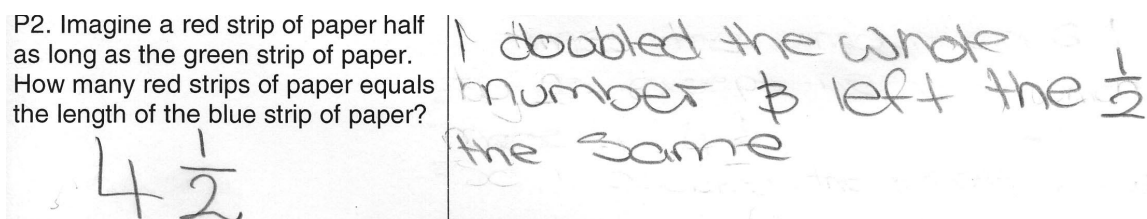 P2. Imagine a red strip of paper half
as long as the green strip of paper.
How many red strips of paper equals
the length of the blue strip of paper?
4 1/2
I doubled the whole
number & left the 1/2
the same